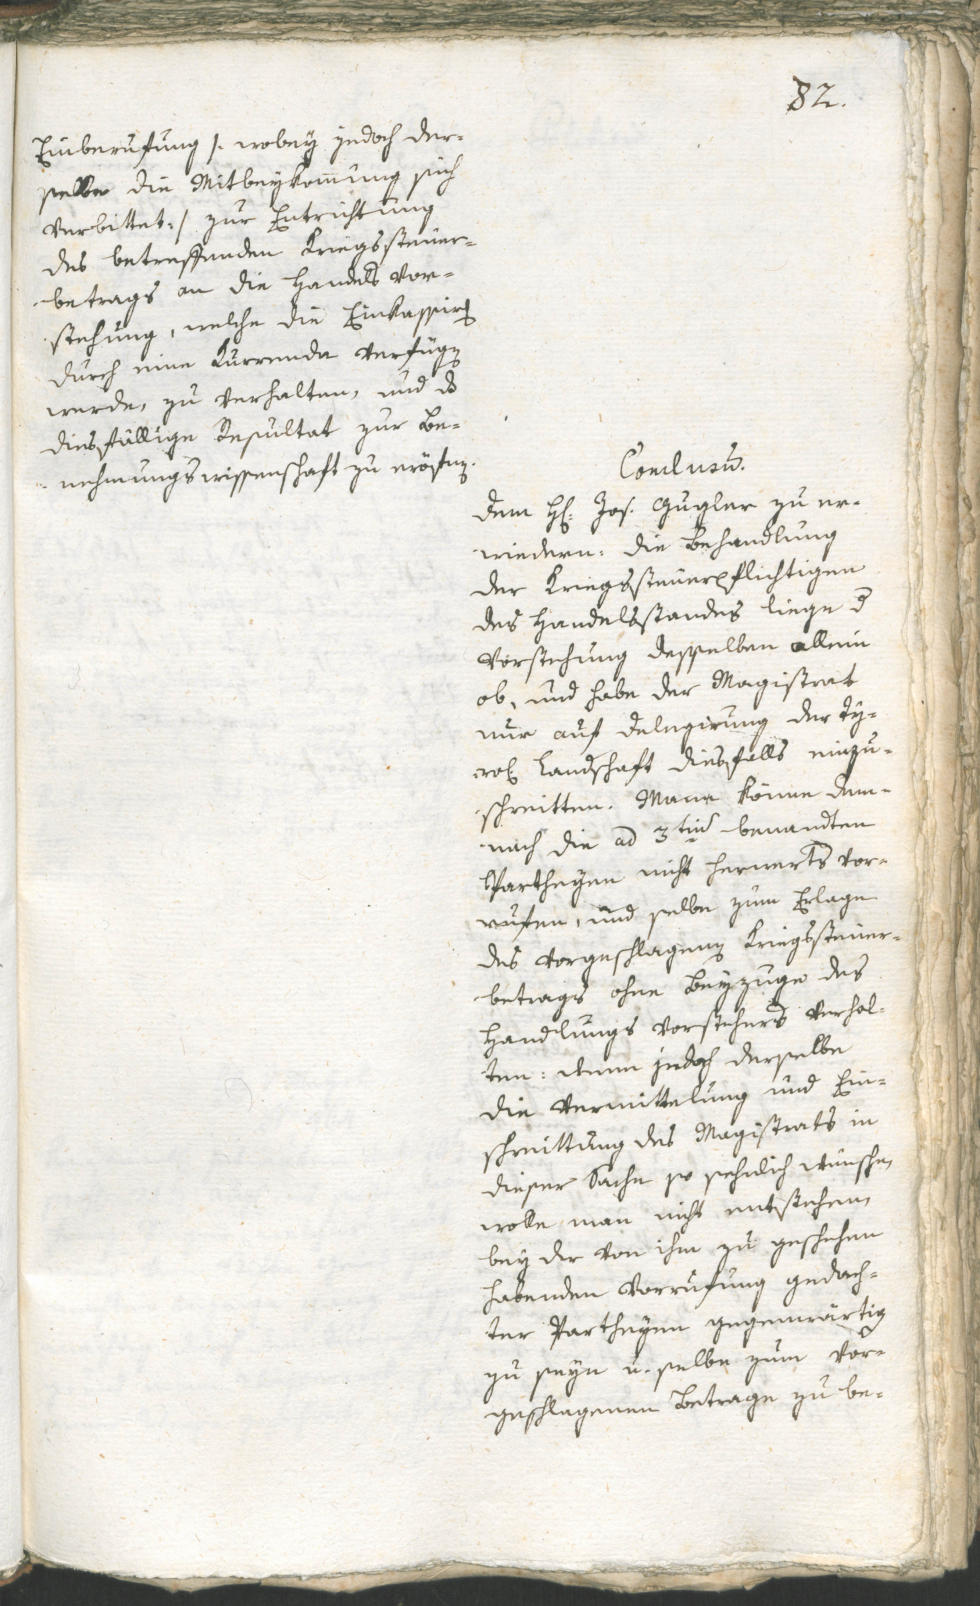 82.
Einberufung /: wobey jedoch der-
selbe die Mitbeykom̅ung sich
verbittet :/ zur Entrichtung
des betreffenden Kriegssteuer-
betrags an die Handels Vor-
stehung, welche die Einkassirg
durch eine Kurrenda verfügen
werde, zu verhalten, und das
diesfällige Resultat zur Be-
nehmungswissenschaft zu eröfnen.
Conclusum.
Dem H: Jos. Gugler zu er-
wiedern: die Behandlung
der Kriegssteuerpflichtigen
des Handelsstandes liege der
Vorstehung desselben allein
ob, und habe der Magistrat
nur auf Delegirung der ty-
rol Landschaft diesfalls einzu-
schreitten. Mann könne dem-
nach die ad 3tium benandten
Partheyen nicht herwerts vor-
rufen, und selbe zum Erlage
des vorgeschlagenen Kriegssteuer-
betrags ohne Beyzuge des
Handlungs Vorstehers verhal-
ten: wenn jedoch derselbe
die Vermittelung und Ein-
schreittung des Magistrats in
dieser Sache so sehnlich wünsche,
wolle man nicht entstehen,
bey der von ihm zu geschehen
habenden Vorrufung gedach-
ter Partheyen gegenwärtig
zu seyn u. selbe zum vor-
geschlagenen Betrage zu be-